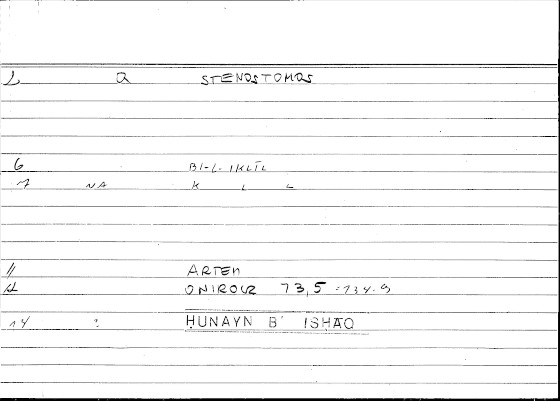 1 a STENOSTOMOS
6 BI-L-IKLĪL
7 NA K L L
11 ARTEM
12 ONIROCR 73,5 = 134.9
14 : HUNAYN B' ISHAQ